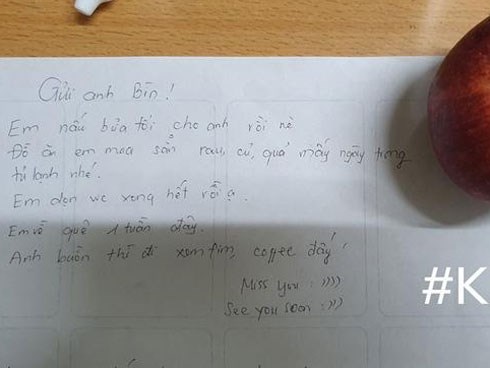 Gửi anh Bin!
Em nấu bửa tối cho anh rồi nè
Đồ ăn em mua sẵn rau, củ, quả mấy ngày trong
tủ lạnh nhé.
Em dọn wc xong hết rồi ạ.
Em về quê 1 tuần đây.
Anh buồn thì đi xem fim, coffee đấy!
Miss you :))))
See you soon :)))
#K